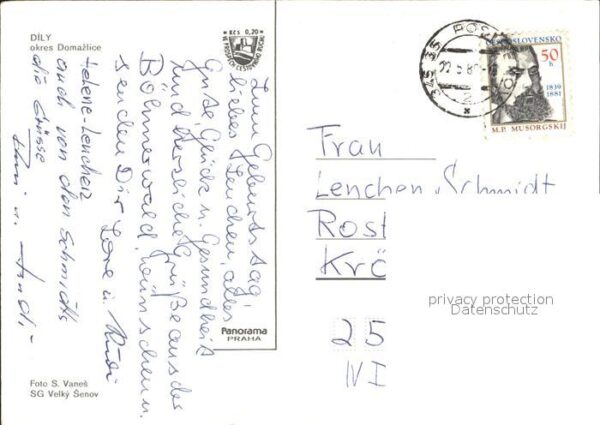 DÍLY
okres Domažlice
Kčs 0,20
Zum Geburtstag,
liebes Lenchen, alles
Gute, Glück u. Gesundheit
und herzliche Grüße aus dem
Böhmerwald, wünschen u.
senden Dir Lore u. Rudi
auch von den Schmidts
die Grüsse
Foto S. Vaneš
SG Velký Šenov
Panorama
PRAHA
345 35 POS
22.5.89
ČESKOSLOVENSKO
50
h
1839
1881
M.P. MUSORGSKIJ
Frau
Lenchen Schmidt
Rost
Krč
privacy protection
Datenschutz
25